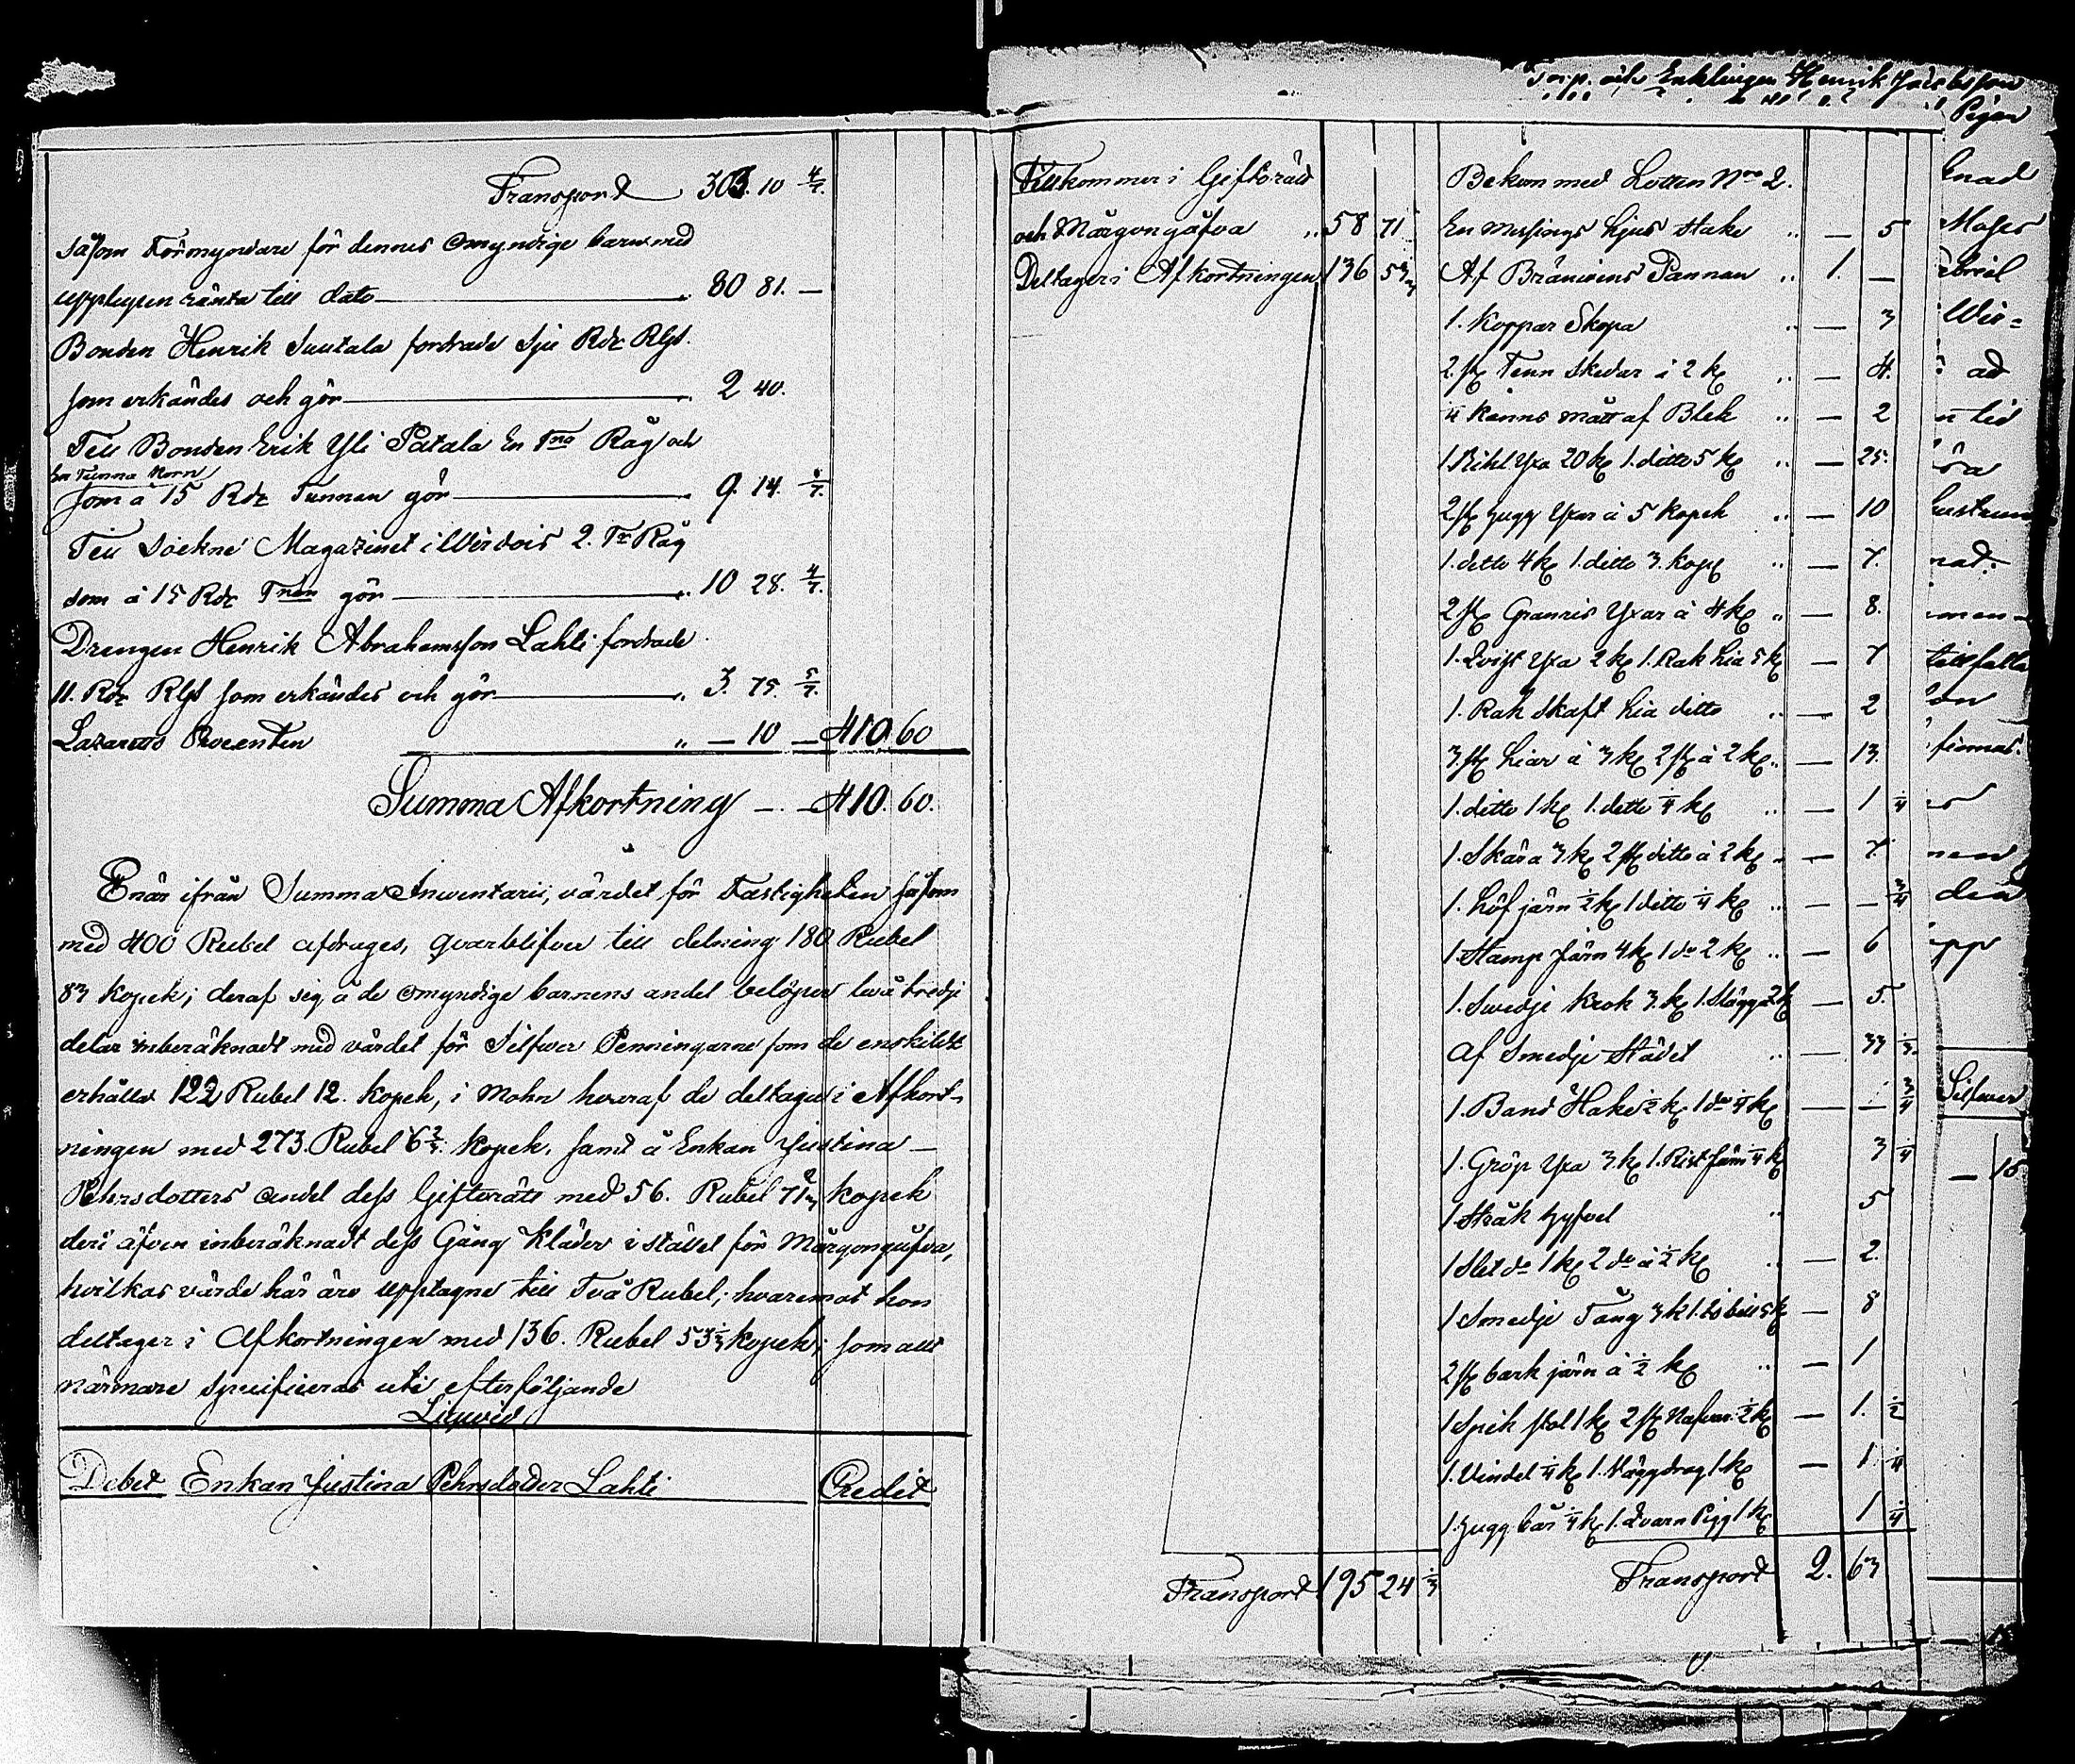 Transport 303. 10 4/7.
såsom Förmyndare för dennes omyndige barn med
upplupen ränta till dato 80 81. —
Bonden Henrik Suutala fordrade Sju Rdr Rgs.
som erkändes och gör 2 40.
Till Bonden Erik Yli Patala En Tna Råg och
en Tunna Korn
som a 15 Rdr Tunnan gör 9. 14.
Till Sockne Magazinet i Wirdois 2. Tr Råg
som á 15 Rdr Tnan gör 10 28. 4/7.
Drengen Henrik Abrahamsson Lahti fordrade
11. Rdr Rgs som erkändes och gör 3. 75. 5/7.
Lazaretts Procenten „ — 10 — 410 60
Summa Afkortning — . — 410. 60.
Enär ifrån Summa Inventarii, värdet för Fastigheten såsom
med 400 Rubel afdrages, qvarblifver till delning 180 Rubel
83 Kopek; deraf sig å de omyndige barnens andel belöper två tredje
delar inberäknadt med värdet för Silfwer Penningarne som de enskildt
erhålla 122 Rubel 12. Kopek, i mohn hvaraf de deltaga i Afkort-
ningen med 273. Rubel 6 2/3. Kopek. samt å Enkan Justina
Pehrsdotters andel dess Gifterätt med 56. Rubel 71 Kopek
deri äfven inberäknadt dess Gång Kläder i stället för Mårgongåfva,
hvilkas värde här äro upptagne till Två Rubel; hvaremot hon
deltager i Afkortningen med 136. Rubel 53 1/3 Kopek; som allt
närmare specificeras uti efterföljande
Liqvid
Debet Enkan Justina Pehrsdotter Lahti Credit
Tillkommer i Giftorätt
och Mårgongåfva „ 58 71
Deltager i Afkortningen 136 53 1/3
Transport 195 24 1/3
Torp. och Enklingen Henrik Jacobsson
Pigan
Bekom med Lotten Nro 2.
En Messings Ljus stake „ — 5
Af Bränwins Pannan „ 1. —
1. Koppar Skopa „ — 3
2. st Tenn skedar á 2 k „ — 4.
1/4 Kanns mått af Blek „ — 2
1. Bihl Yxa 20 k 1. ditto 5 k „ — 25.
2 st hugg Yxar á 5 Kopek „ — 10
1. ditto 4 k 1. ditto 3. Kop „ — 7.
2 st Granris Yxar á 4 k „ — 8.
1. Qvist Yxa 2 k 1. Rak Lia 5 k — 7
1. Rak Skaft Lia ditto „ — 2
3. st Liar á 3 k 2 st á 2 k „ — 13.
1. ditto 1 k 1. ditto 1/4 k „ — 1 1/4
1. Skära 3 k 2 st ditto á 2 k „ — 7.
1. Höf järn 1/2 k 1 ditto 1/4 k „ — — 3/4
1. Stamp Järn 4 k 1 do 2 k „ — 6
1. Swedje Krok 3. k 1. Slägga 2 k — 5.
Af Smedje Städet „ — 33 1/3.
1. Band Hake 1/2 k 1 do 1/4 k — — 3/4
1. Gröp Yxa 3 k 1. Rist Järn 1/4 k 3 1/4
1 Stråk hyfvel „ 5
1 Slet do 1 k 2 do á 1/2 k „ — 2.
1 Smedje Tång 3 k 1. Is bill 5 k — 8
2 st bark järn á 1/2 k „ — 1
1 Spik stol 1 k 2 st Nafvar 1/2 k — 1. 1/2
1. Vindel 1/4 k 1. Väggdrag 1 k — 1 1/4
1. hugg bår 1/4 k 1. Qvarn Pigg 1 k 1 1/4
Transport 2. 63
ad
n tid
nad.
tillfalla
den
Silfwer
— 15